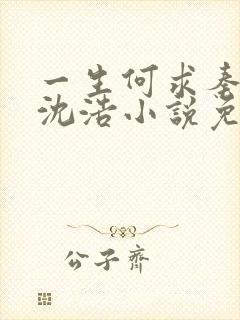 一生何求秦
沈浩小說免
公子齊